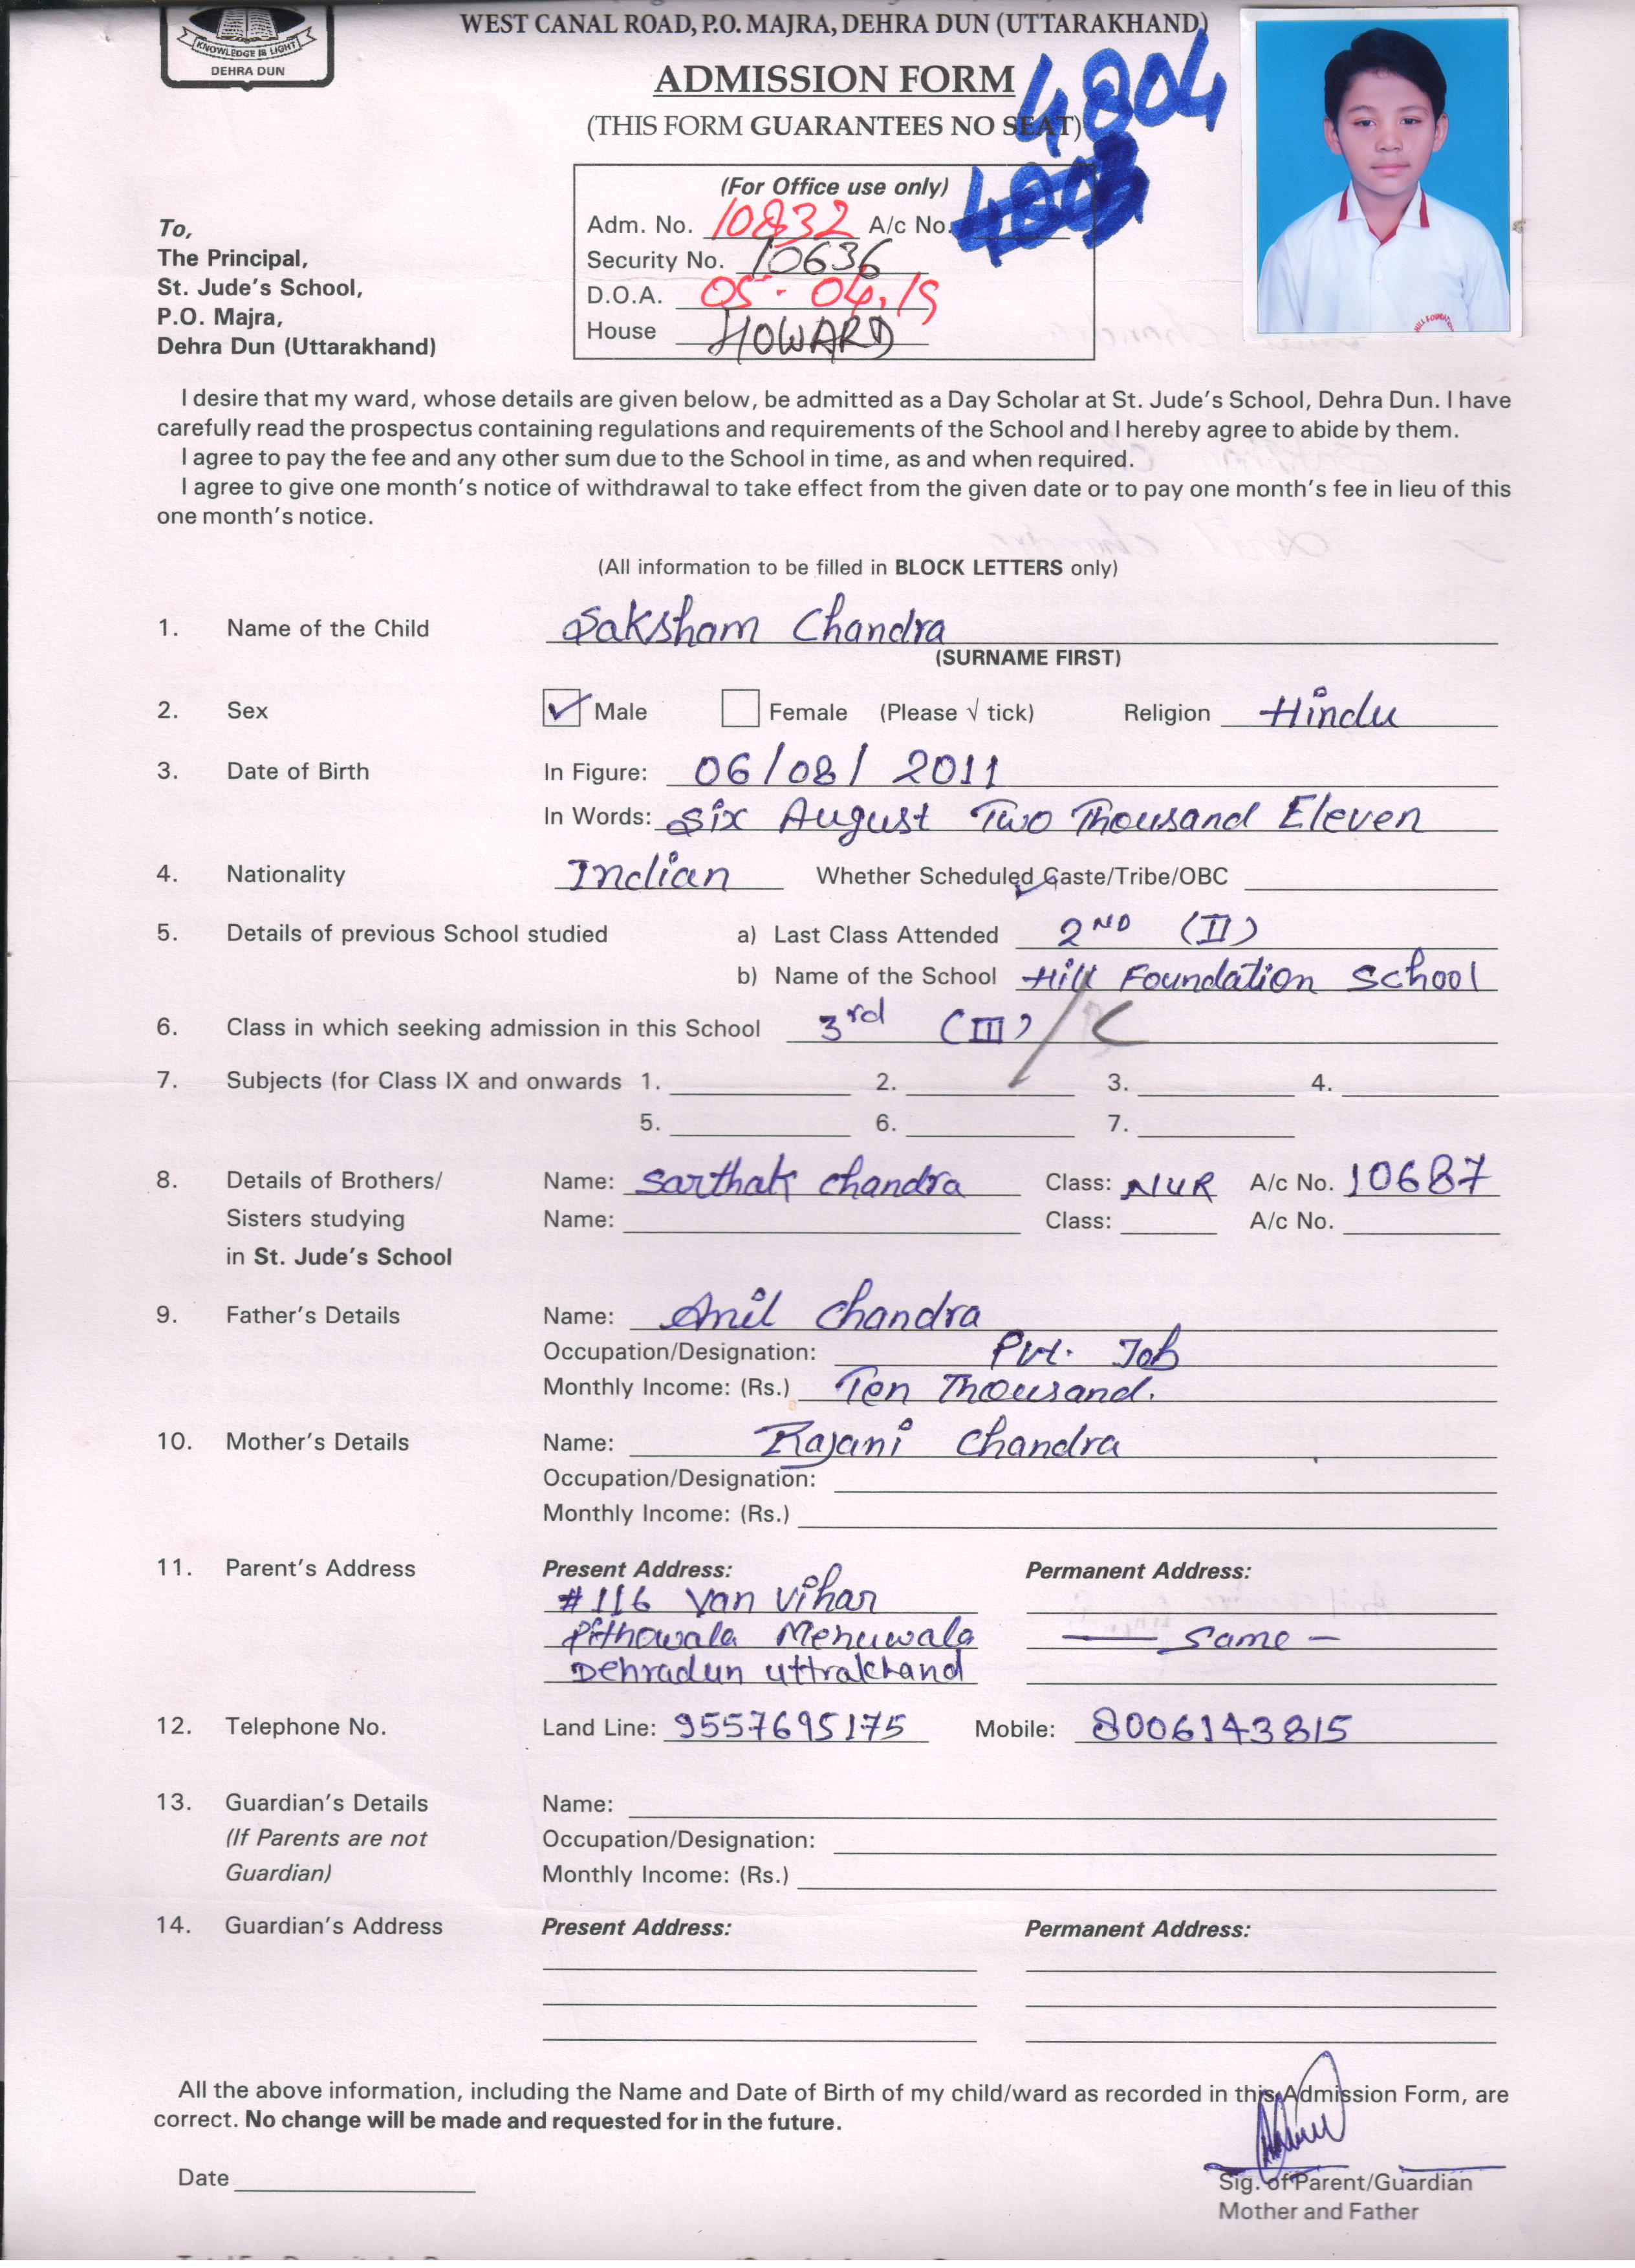 KNOWLEDGE IS LIGHT
DEHRA DUN
WEST CANAL ROAD, P.O. MAJRA, DEHRA DUN (UTTARAKHAND)
ADMISSION FORM
4804
(THIS FORM GUARANTEES NO SEAT)
(For Office use only)
Adm. No. 10832 A/c No. 4803
Security No. 10636
D.O.A. 05-04.19
House HOWARD
To,
The Principal,
St. Jude's School,
P.O. Majra,
Dehra Dun (Uttarakhand)
I desire that my ward, whose details are given below, be admitted as a Day Scholar at St. Jude's School, Dehra Dun. I have
carefully read the prospectus containing regulations and requirements of the School and I hereby agree to abide by them.
I agree to pay the fee and any other sum due to the School in time, as and when required.
I agree to give one month's notice of withdrawal to take effect from the given date or to pay one month's fee in lieu of this
one month's notice.
(All information to be filled in BLOCK LETTERS only)
1. Name of the Child Saksham Chandra
(SURNAME FIRST)
2. Sex ✓ Male Female (Please √ tick) Religion Hindu
3. Date of Birth In Figure: 06/08/2011
In Words: Six August Two Thousand Eleven
4. Nationality Indian Whether Scheduled Caste/Tribe/OBC
5. Details of previous School studied a) Last Class Attended 2ND (II)
b) Name of the School Hill Foundation School
6. Class in which seeking admission in this School 3rd (III) / C
7. Subjects (for Class IX and onwards 1. 2. 3. 4.
5. 6. 7.
8. Details of Brothers/ Name: Sarthak Chandra Class: NUR A/c No. 10687
Sisters studying Name: Class: A/c No.
in St. Jude's School
9. Father's Details Name: Anil Chandra
Occupation/Designation: Pvt. Job
Monthly Income: (Rs.) Ten Thousand.
10. Mother's Details Name: Rajani Chandra
Occupation/Designation:
Monthly Income: (Rs.)
11. Parent's Address Present Address: Permanent Address:
#116 Van Vihar
Pithowala Mehuwala — Same -
Dehradun Uttrakhand
12. Telephone No. Land Line: 9557695175 Mobile: 8006143815
13. Guardian's Details Name:
(If Parents are not Occupation/Designation:
Guardian) Monthly Income: (Rs.)
14. Guardian's Address Present Address: Permanent Address:
All the above information, including the Name and Date of Birth of my child/ward as recorded in this Admission Form, are
correct. No change will be made and requested for in the future.
Date
Sig. of Parent/Guardian
Mother and Father